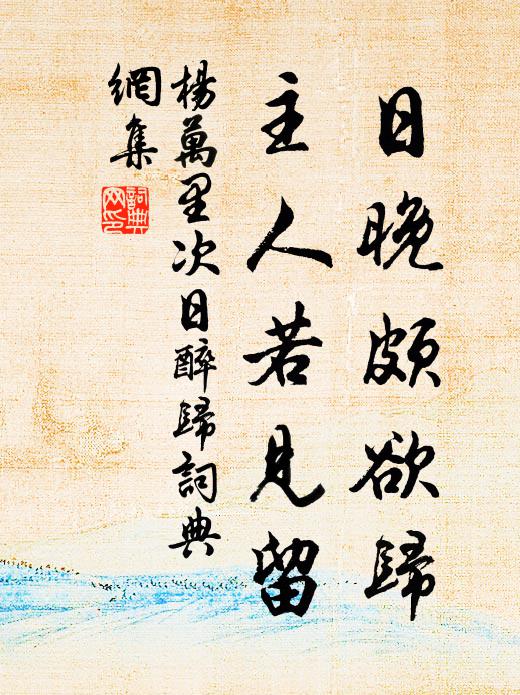 日晚頗欲歸
主人若見留
楊萬里次日醉歸詞典
網集
詞典網印